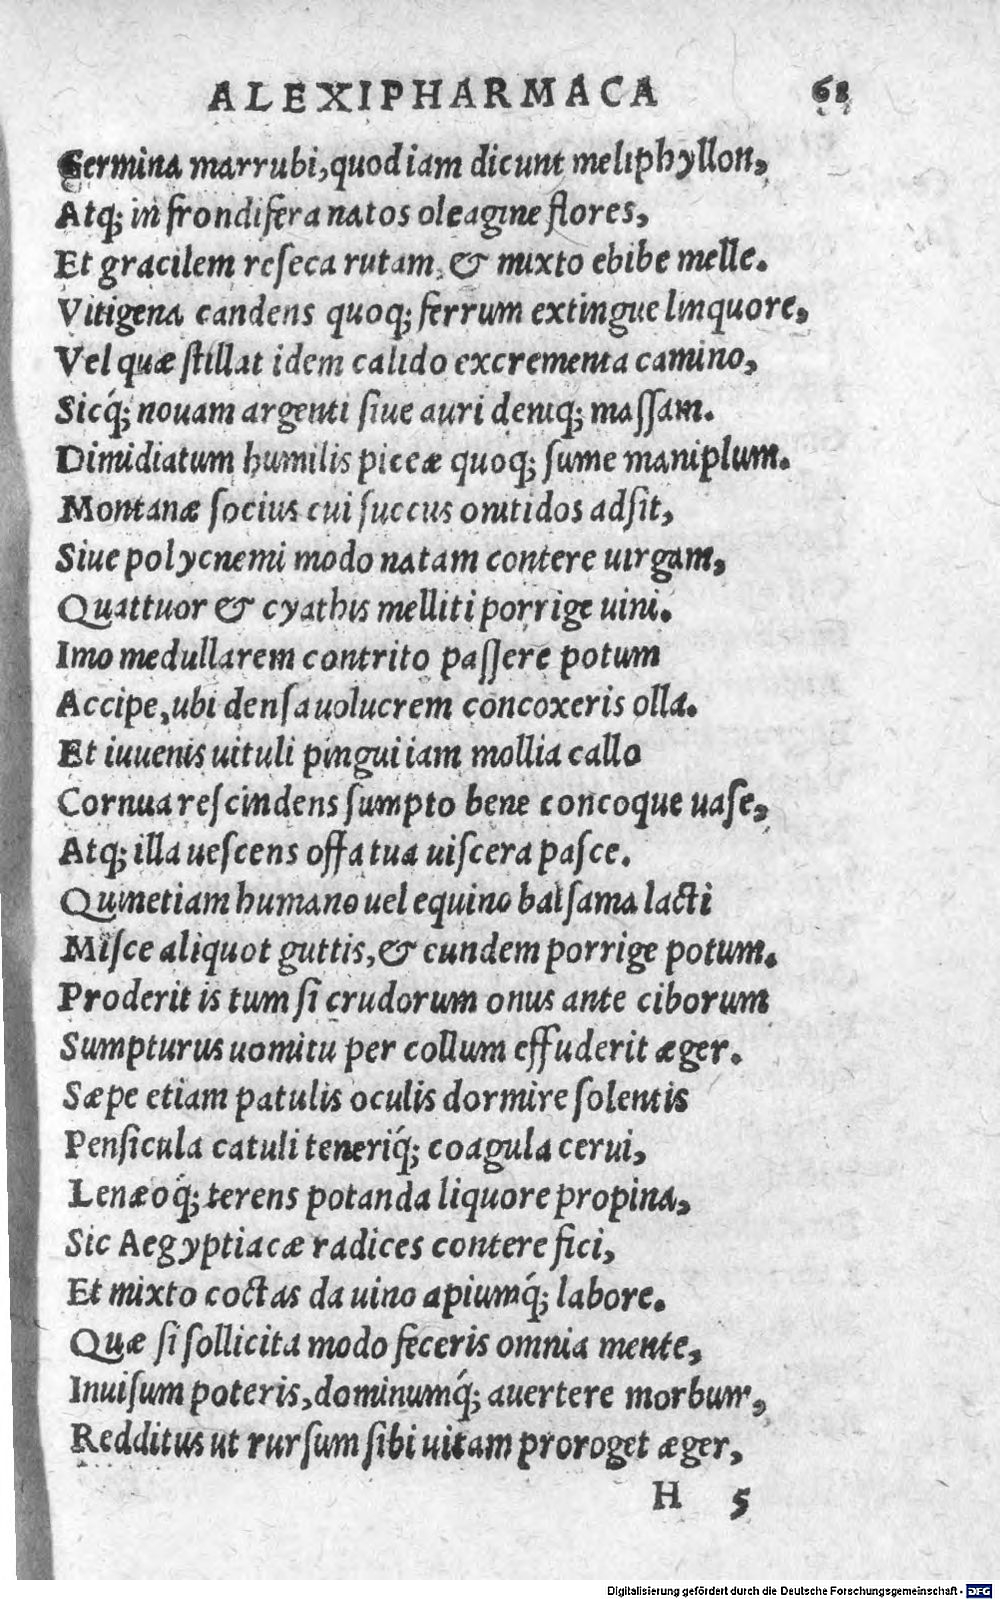 ALEXIPHARMACA 68
Germina marrubi, quod iam dicunt meliphyllon,
Atq; in frondifera natos oleagine flores,
Et gracilem reſeca rutam, & mixto ebibe melle.
Vitigena candens quoq; ferrum extingue linquore,
Vel quæ ſtillat idem calido excrementa camino,
Sicq́; nouam argenti ſiue auri deniq; maſſam.
Dimidiatum humilis piceæ quoq; ſume maniplum.
Montanæ ſocius cui ſuccus onitidos adſit,
Siue polycnemi modo natam contere uirgam,
Quattuor & cyathis melliti porrige uini.
Imo medullarem contrito paſſere potum
Accipe, ubi denſa uolucrem concoxeris olla.
Et iuuenis uituli pingui iam mollia callo
Cornua reſcindens ſumpto bene concoque uaſe,
Atq; illa ueſcens offa tua uiſcera paſce.
Quinetiam humano uel equino balſama lacti
Miſce aliquot guttis, & eundem porrige potum.
Proderit is tum ſi crudorum onus ante ciborum
Sumpturus uomitu per collum effuderit æger.
Sæpe etiam patulis oculis dormire ſolentis
Penſicula catuli teneriq́; coagula cerui,
Lenæoq́; terens potanda liquore propina,
Sic Aegyptiacæ radices contere fici,
Et mixto coctas da uino apiumq́; labore.
Quæ ſi ſollicita modo feceris omnia mente,
Inuiſum poteris, dominumq́; auertere morbum,
Redditus ut rurſum ſibi uitam proroget æger,
H 5
Digitalisierung gefördert durch die Deutsche Forschungsgemeinschaft - DFG